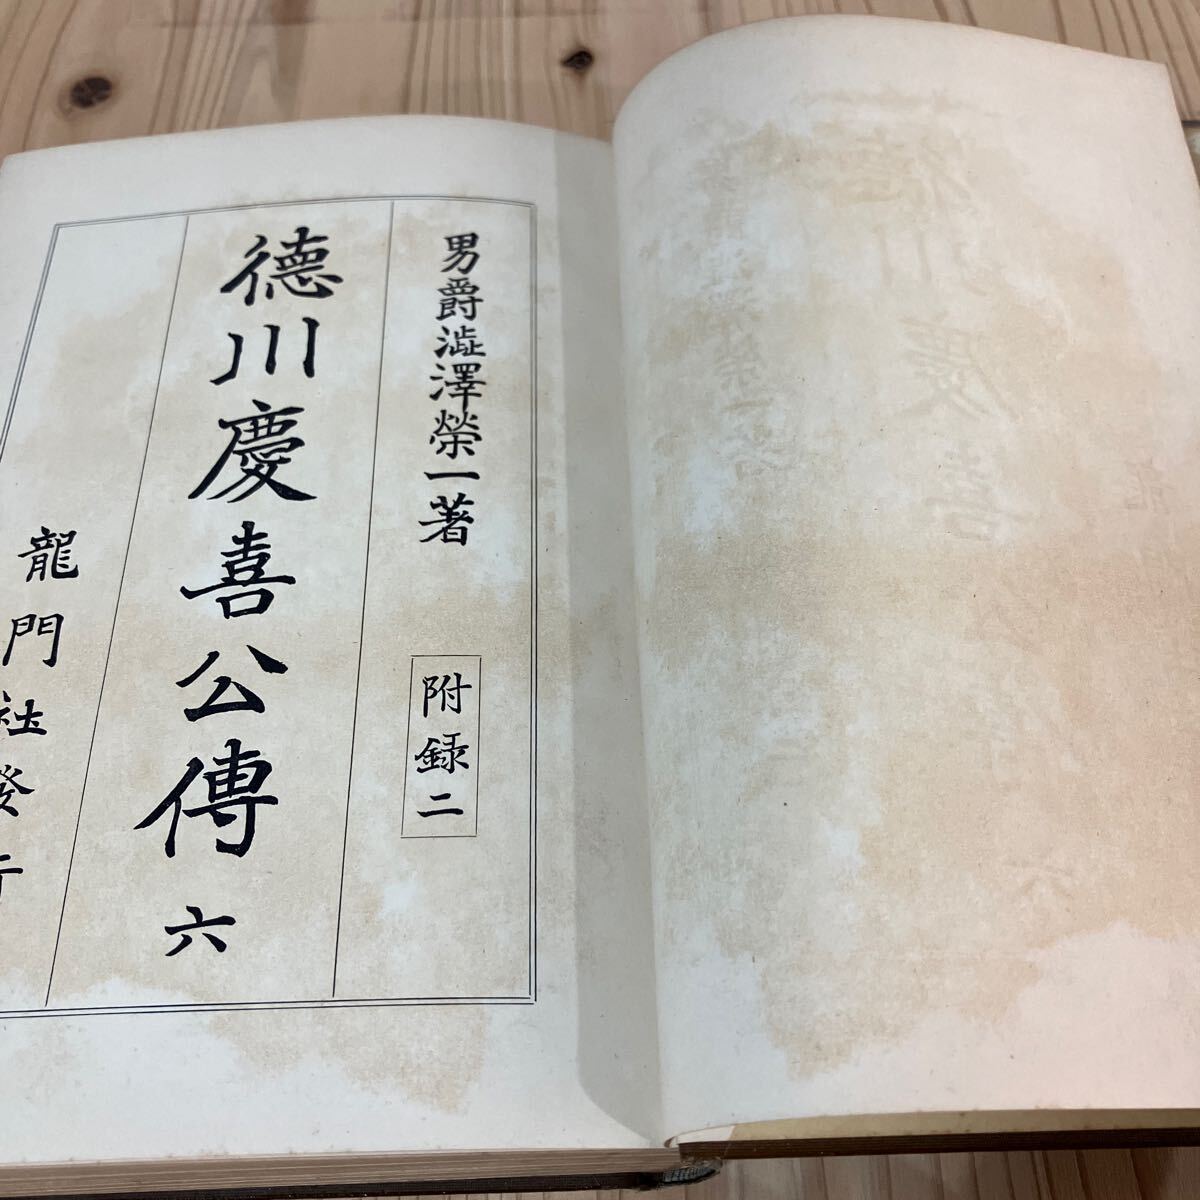 男爵澁澤榮一著
附録二
德川慶喜公傳 六
龍門社發行